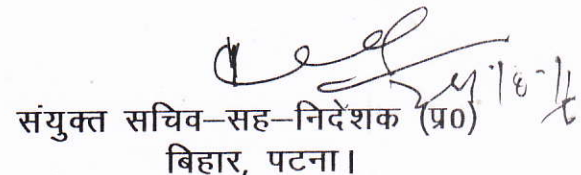 संयुक्त सचिव–सह–निदेशक (प्र0)
बिहार, पटना।